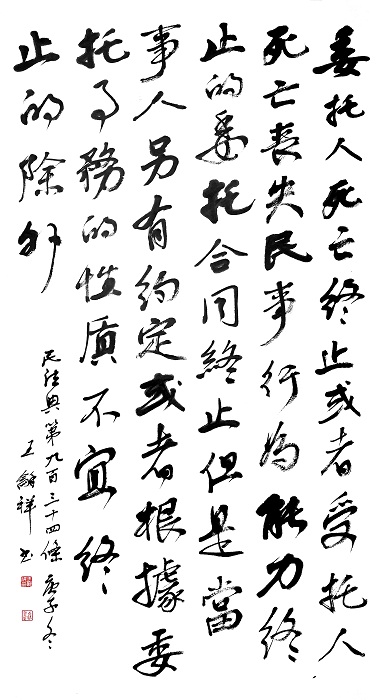 委托人死亡終止或者受托人
死亡喪失民事行為能力終
止的委托合同終止但是當
事人另有約定或者根據委
托事務的性質不宜終
止的除外
民法典第九百三十四條 庚子冬
王 祥 书